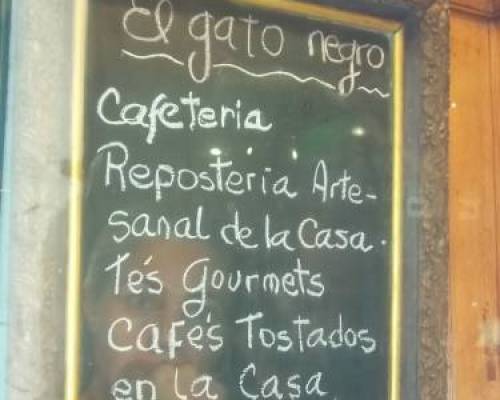 El gato negro
Cafeteria
Reposteria Arte-
sanal de la Casa.
Te's Gourmets
Cafe's Tostados
en la Casa